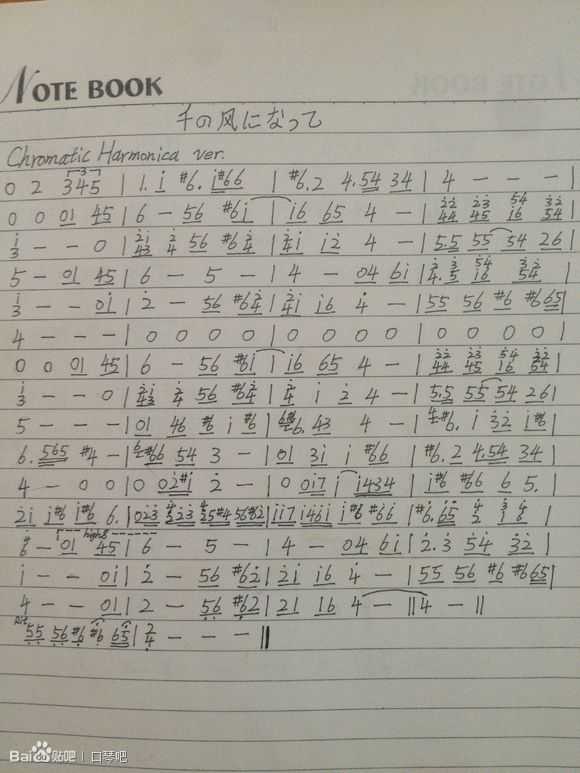 NOTE BOOK
千の风になって
Chromatic Harmonica ver.
0 2 345 | 1. i #6. i#66 | #6.2 4.54 34 | 4 - - - |
0 0 01 45 | 6 - 56 #6i | i6 65 4 - |
3 - - 0 | 56 #64 | 4i i2 4 - | 5.5 55 54 26 |
5 - 01 45 | 6 - 5 - | 4 - 04 6i |
3 - - 0i | 2 - 56 #64 | i6 4 - | 55 56 #6 #665 |
4 - - - | 0 0 0 0 | 0 0 0 0 | 0 0 0 0 |
0 0 01 45 | 6 - 56 #6i | i6 65 4 - |
3 - - 0 | 56 #64 | 4 i 2 4 - | 5.5 55 54 26 |
5 - - - | 01 46 #6 i #6 | 43 4 - | i 32 i#6 |
6. 565 #4 - | #66 54 3 - | 01 3i i #66 | #6.2 4.54 34 |
4 - 0 0 | 0 02#i 2 - | 0 0i7 i i434 | i#6 #66 6 5. |
2i i#6 i#6 6. | 023 | ii7 i46i i#6 #66i | #6. 65
6 - 01 high8 45 | 6 - 5 - | 4 - 04 6i | 2.3 54 32 |
i - - 0i | 2 - 56 #62 | 2i i6 4 - | 55 56 #6 #665 |
4 - - 01 | 2 - 56 #62 | 21 16 4 - || 4 - ||
Rit 55 56 #6 #6 65 | - - - ||
Bai du 贴吧 | 口琴吧